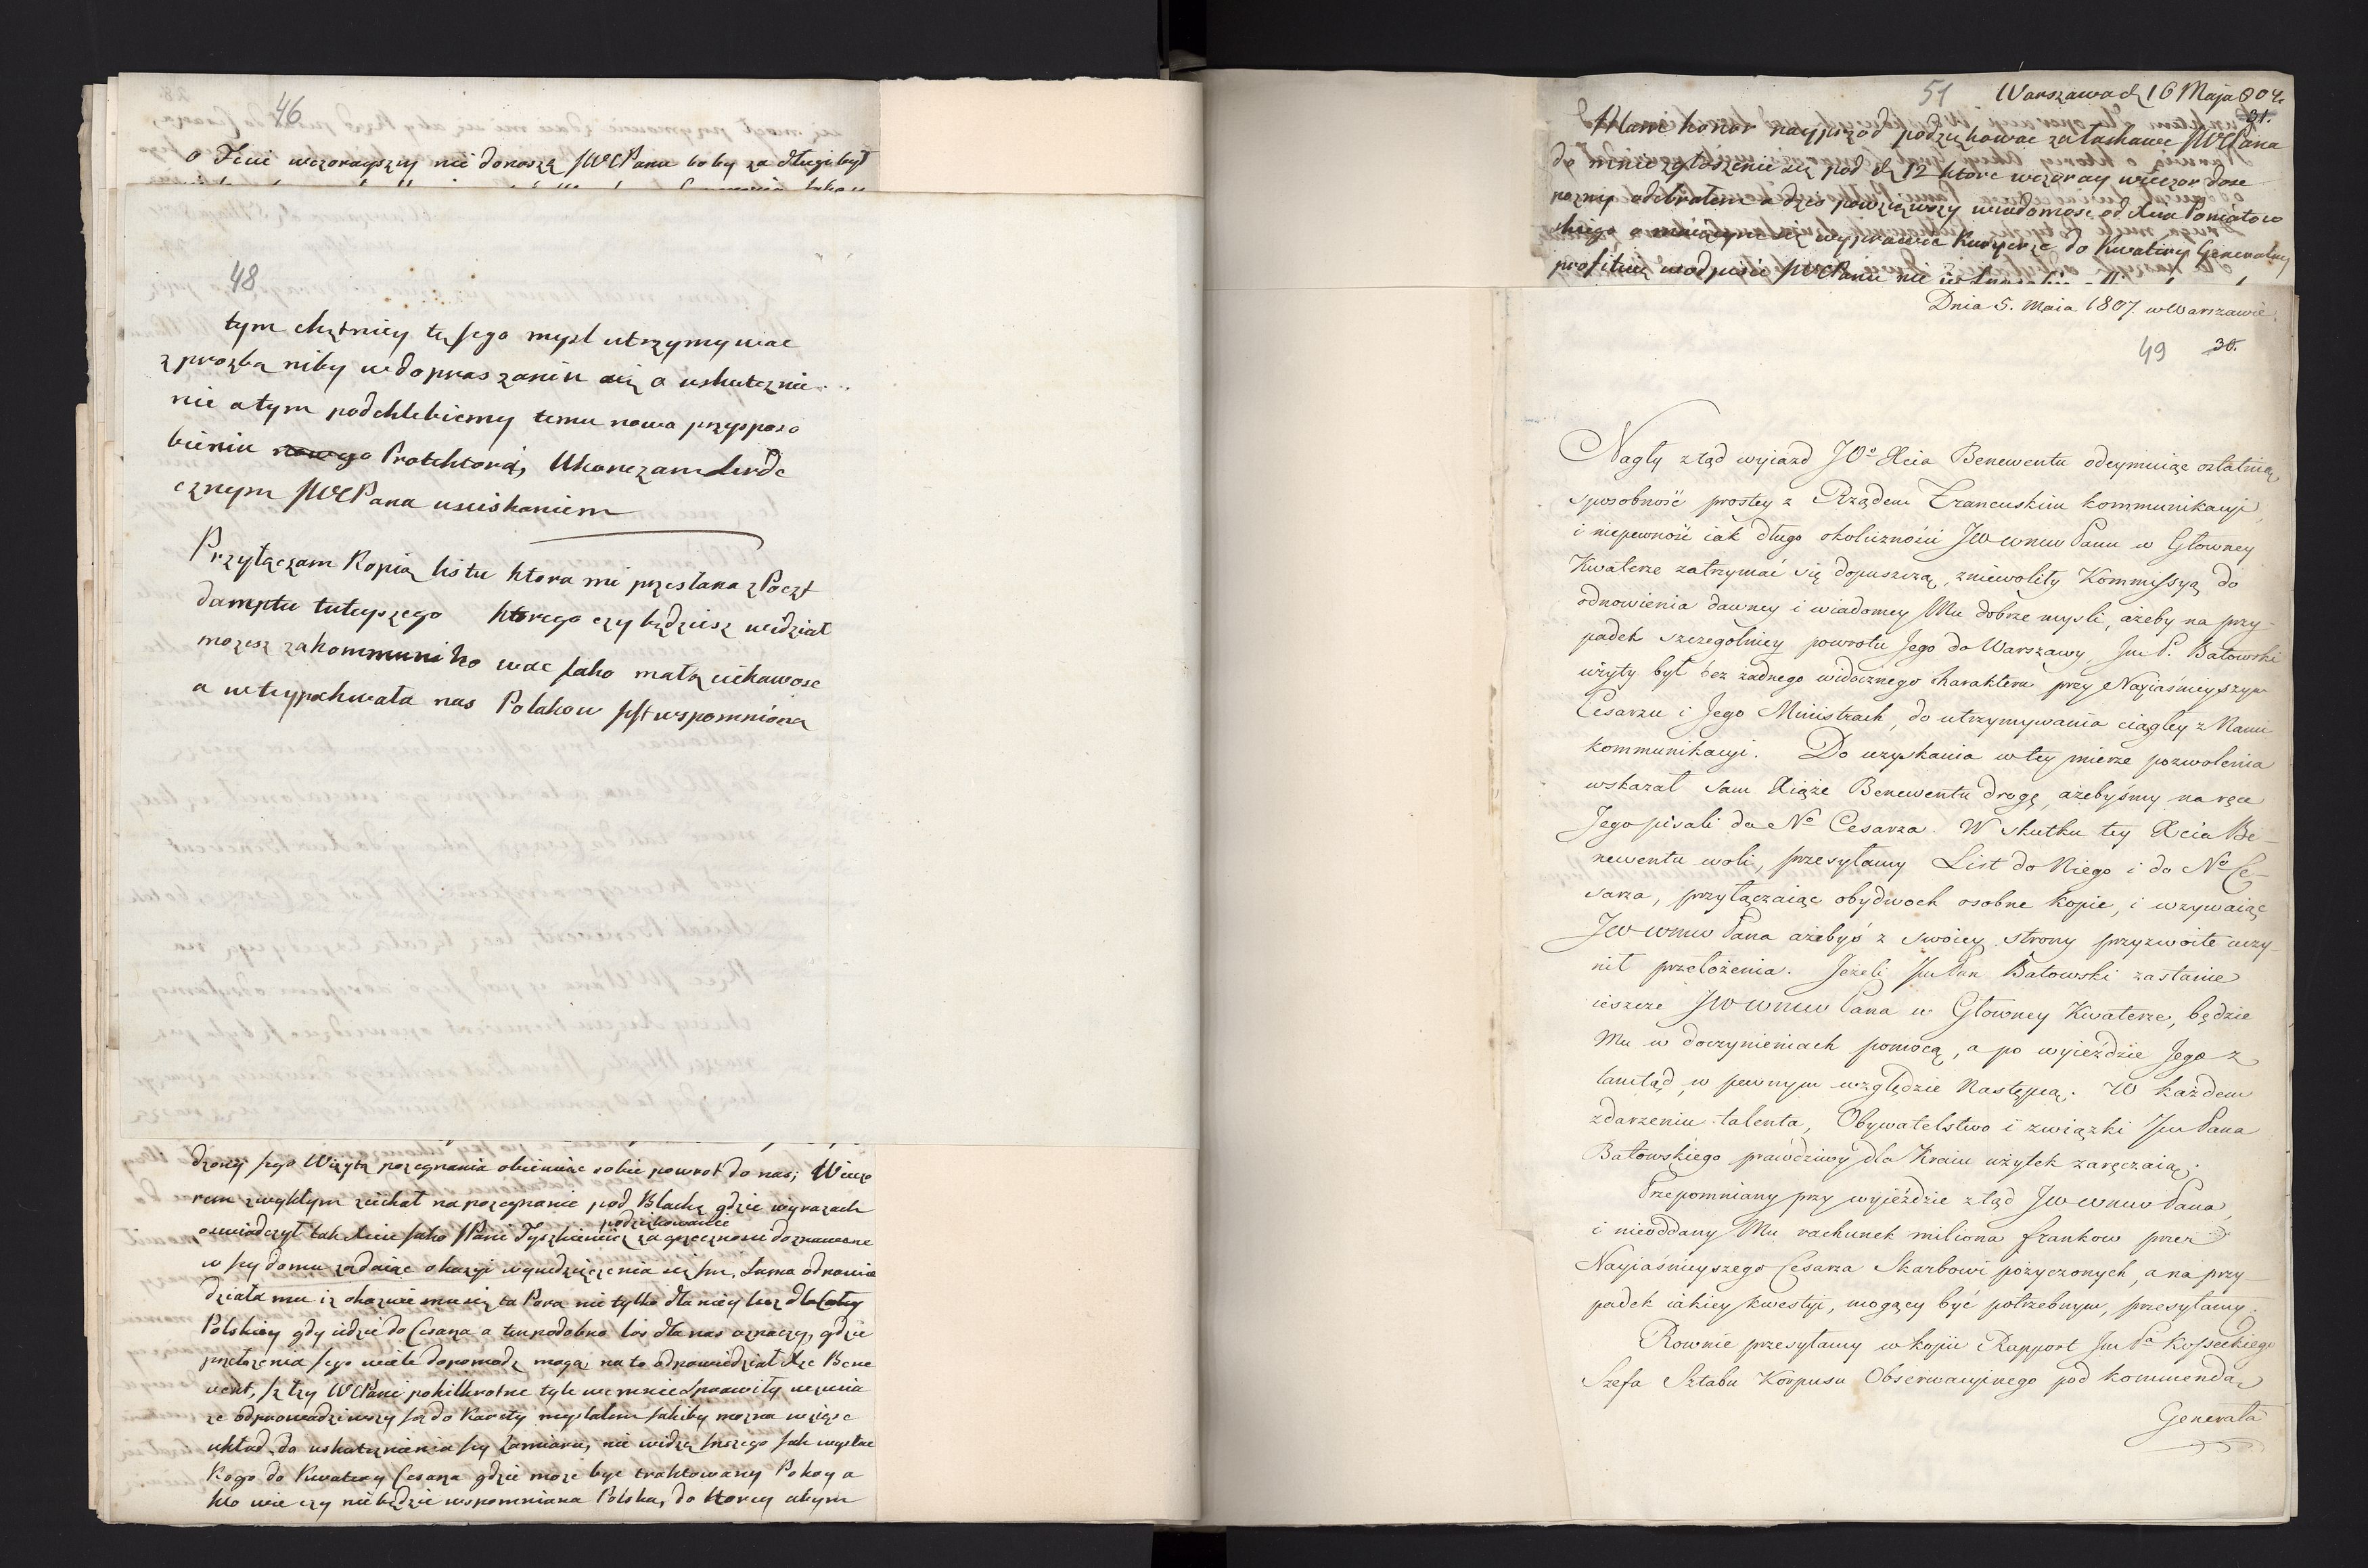 46
o Fecie wczorayszey nie donoszę JWWPanu bo by za długi był
48
tym chętniey tę Jego mysl utrzymywac
z prozbą niby w dopraszaniu się o uskuteznie
nie a tym podchlebiemy temu nowo przysposo
bieniu nowego Protektora, Ukonczam Serde
cznym JWWPana usciskaniem
Przyłączam Kopią listu ktora mi przesłana z Poczt
damptu tuteyszego ktorego czy będziesz widział
mozesz zakommuniko wac Jako małą ciekawosc
a w tey pochwała nas Polakow jest wspomniona
dzoney Jego Wizytą pozegnania obiecuiąc sobie powrot do nas; Wieczo
rem zwykłym ziechał na pozegnanie pod Blachę gdzie wyrazach
podziękowanie
oswiadczył tak Xciu Jako JPani Tyszkiewicz za grzecznosci doznawane
w Jey domu żądaiąc okazyi wywdzięczenia się Jm. Sama odpowie
działa mu iż okazuie mu się ta Pora nie tylko dla niey lecz dla Całey
Polskiey gdy idzie do Cesarza a ten podobno los dla nas oznaczy, gdzie
przełozenia Jego wiele dopomodz mogą na to odpowiedział Xże Bene
vent, Jż łzy WPani pokilkrotne tyle we mnie sprawiły uczucia
ze odprowadziwszy Ją do Karety myslałem jakiby mozna wziąsc
układ do uskutecznienia Jey Zamiaru, nie widzę Inszego Jak wysłac
Kogo do Kwatery Cesarza gdzie moze byc traktowany Pokoy a
kto wie czy nie będzie wspomniana Polska, do ktorey abym
51 Warszawa d. 16 Maja 807.
31.
Mam honor nayprzod podziękowac za łaskawe JWWPana
do mnie zgłoszenie się pod d. 12 ktore wczoray wieczor dosc
pozniey odebrałem a dzis powziąwszy wiadomosc od Xcia Poniatow
skiego o maiącym się wyprawic Kuryerze do Kwatery Generalney
profituię w odpisie JWWPanu nie
Dnia 5. Maia 1807. w Warszawie.
49 30.
Nagły ztąd wyiazd JOº Xcia Benewentu odeymuiąc ostatnią
sposobność prostey z Rządem Francuskim kommunikacyi,
i niepewność iak długo okoliczności JW Panu w Głowney
Kwaterze zatrzymać się dopuszczą, zniewoliły Kommissyą do
odnowienia dawney i wiadomey Mu dobrze mysli, ażeby na przy-
padek szczegolniey powrotu Jego do Warszawy Jm P. Batowski
użyty był bez żadnego widocznego charakteru przy Nayiaśnieyszym
Cesarzu i Jego Ministrach, do utrzymywania ciągłey z Nami
kommunikacyi. Do uzyskania w tey mierze pozwolenia
wskazał sam Xiąże Benewentu drogę, ażebyśmy na ręce
Jego pisali do Nº Cesarza. W skutku tey Xcia Be-
newentu woli, przesyłamy List do Niego i do Nº Ce-
sarza, przyłączaiąc obydwoch osobne kopie, i wzywaiąc
JW Pana ażebyś z swoiey strony przyzwoite uczy-
nił przełożenia. Jeżeli Jm Pan Batowski zastanie
ieszcze JW Pana w Głowney Kwaterze, będzie
Mu w doczynieniach pomocą, a po wyieździe Jego z
tamtąd, w pewnym względzie Następcą. W każdem
zdarzeniu talenta, Obywatelstwo i związki Jm Pana
Batowskiego prawdziwy dla Kraiu użytek zaręczaią.
Przepomniany przy wyieździe ztąd JW Pana,
i nieoddany Mu rachunek miliona frankow przez
Nayiaśnieyszego Cesarza Skarbowi pożyczonych, a na przy-
padek iakiey kwestyi, mogący być potrzebnym, przesyłamy.
Rownie przesyłamy w kopii Rapport Jm Pa Kosseckiego
Szefa Sztabu Korpusu Obserwacyinego pod kommendą
Generała